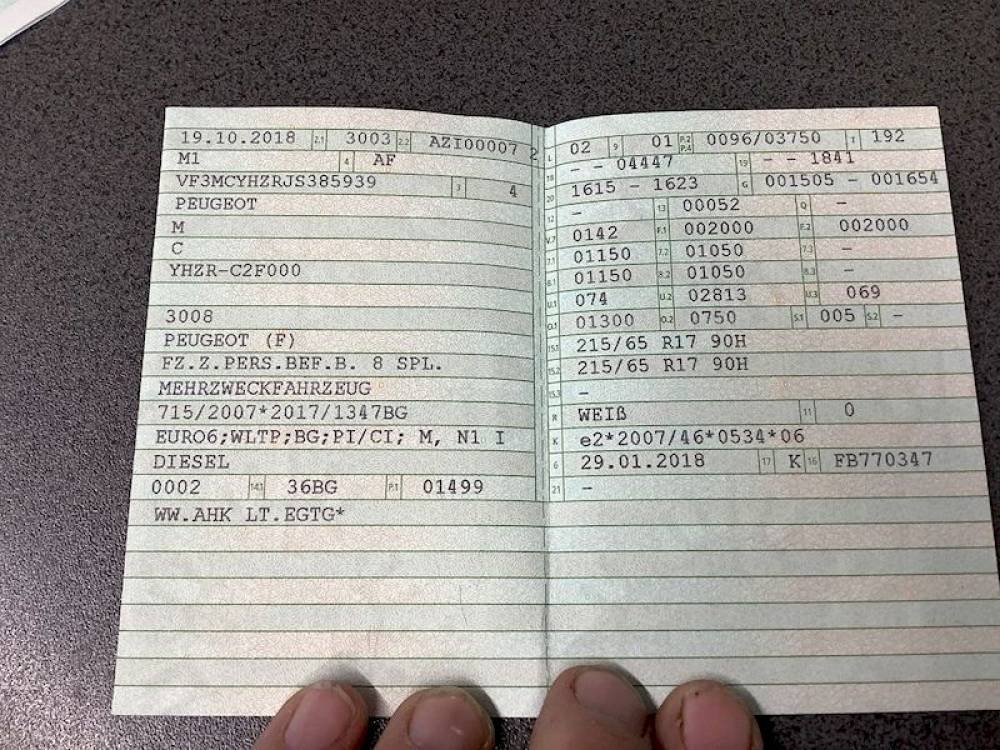 19.10.2018 2.1 3003 2.2 AZI00007 2
M1 4 AF
VF3MCYHZRJS385939 3 4
PEUGEOT
M
C
YHZR-C2F000
3008
PEUGEOT (F)
FZ.Z.PERS.BEF.B. 8 SPL.
MEHRZWECKFAHRZEUG
715/2007*2017/1347BG
EURO6;WLTP;BG;PI/CI; M, N1 I
DIESEL
0002 14.1 36BG P.1 01499
WW.AHK LT.EGTG*
L 02 9 01 P.2 P.4 0096/03750 T 192
18 - - 04447 19 - - 1841
20 1615 - 1623 G 001505 - 001654
12 - 13 00052 Q -
V.7 0142 F.1 002000 F.2 002000
7.1 01150 7.2 01050 7.3 -
8.1 01150 8.2 01050 8.3 -
U.1 074 U.2 02813 U.3 069
O.1 01300 O.2 0750 S.1 005 S.2 -
15.1 215/65 R17 90H
15.2 215/65 R17 90H
15.3 -
R WEIß 11 0
K e2*2007/46*0534*06
6 29.01.2018 17 K 16 FB770347
21 -